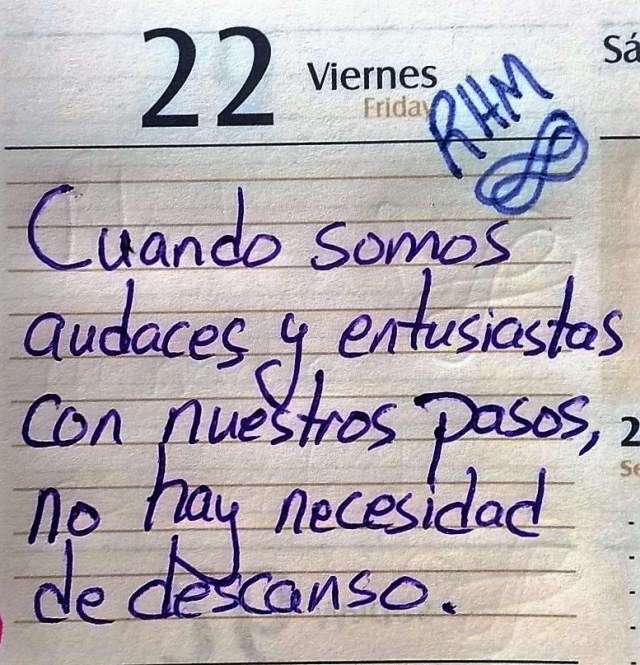 22 Viernes Sá
Friday
RHM
Cuando somos
audaces y entusiastas
con nuestros pasos,
no hay necesidad
de descanso.
2
Se